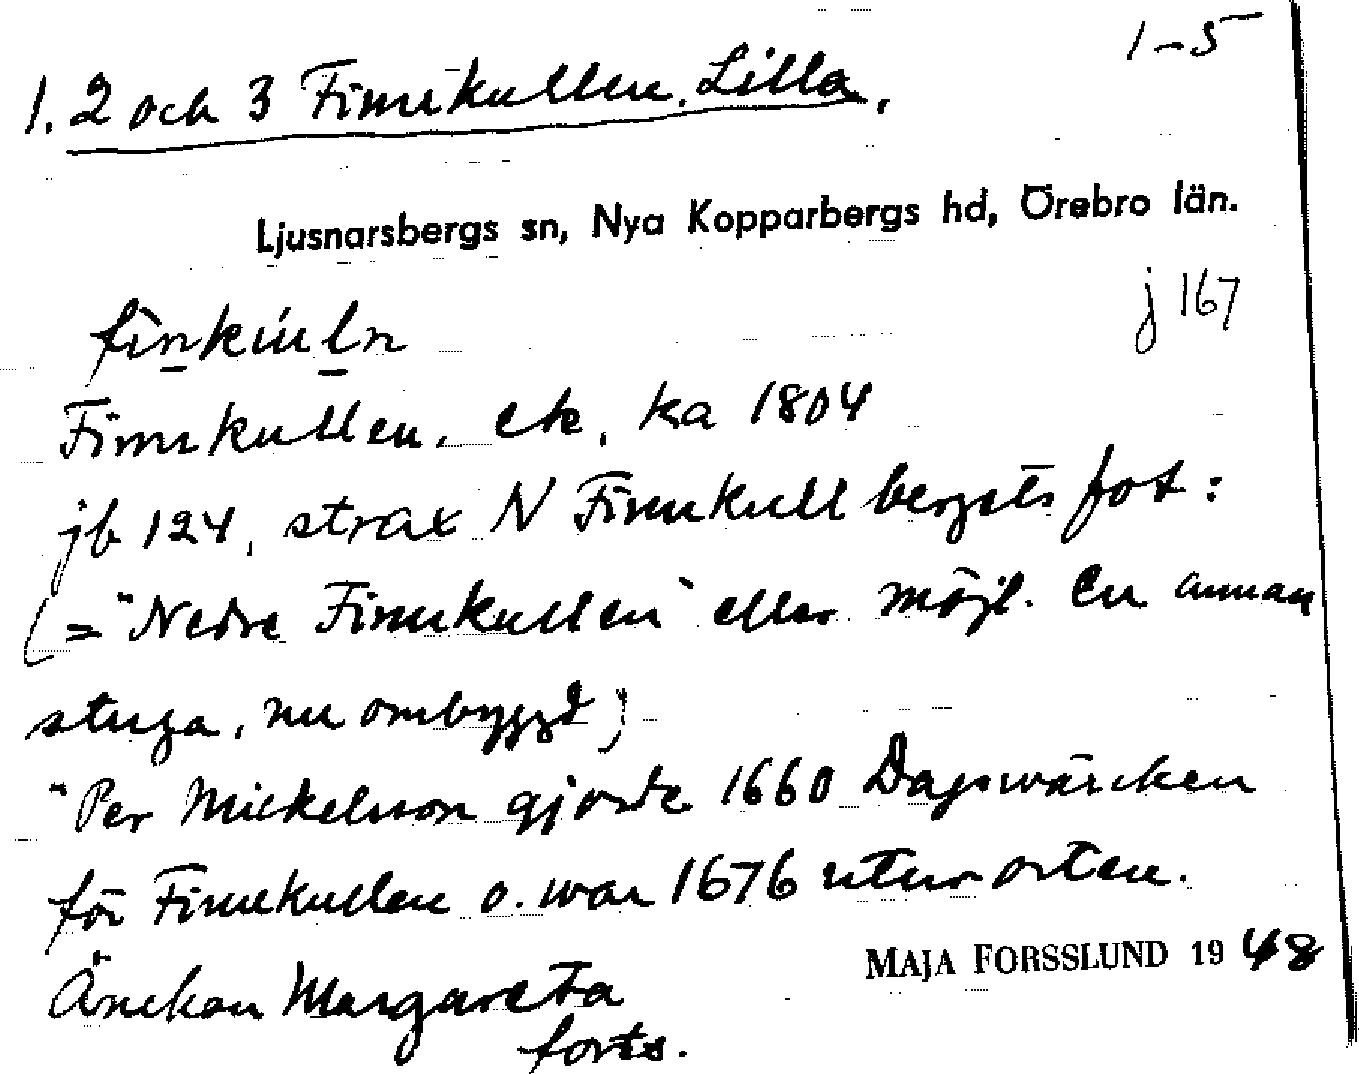 1-5
1. 2 och 3 Finnkullen, Lilla,
Ljusnarsbergs sn, Nya Kopparbergs hd, Örebro län.
j 167
Finnkullen, ek, ka 1804
jb 124, strax N Finnkullbergets fot:
(= "Nedre Finnkullen" eller möjl. en annan
stuga, nu ombyggd)
"Per Mickelsson gjorde 1660 Dagswärcken
för Finnkullen o. war 1676 utur orten.
Änckan Margareta
forts.
MAJA FORSSLUND 1948